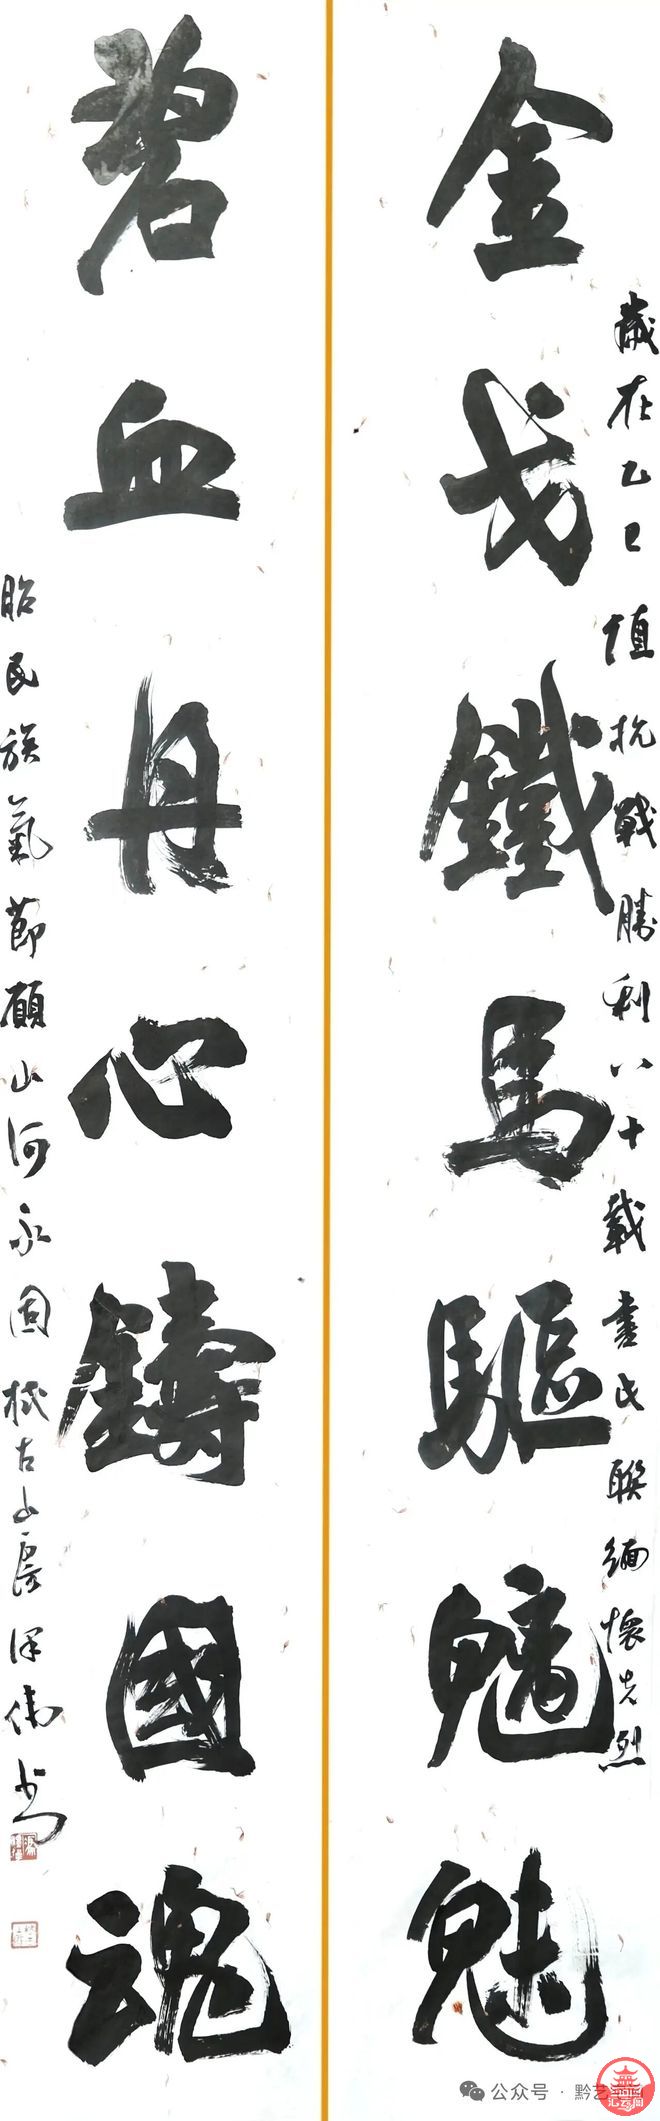 歲在乙巳值抗戰勝利八十載書此聯緬懷先烈
金戈鐵馬驅魑魅
碧血丹心鑄國魂
昭民族氣節願山河永固古山房偉書
公众号 · 黔艺
汇云阁